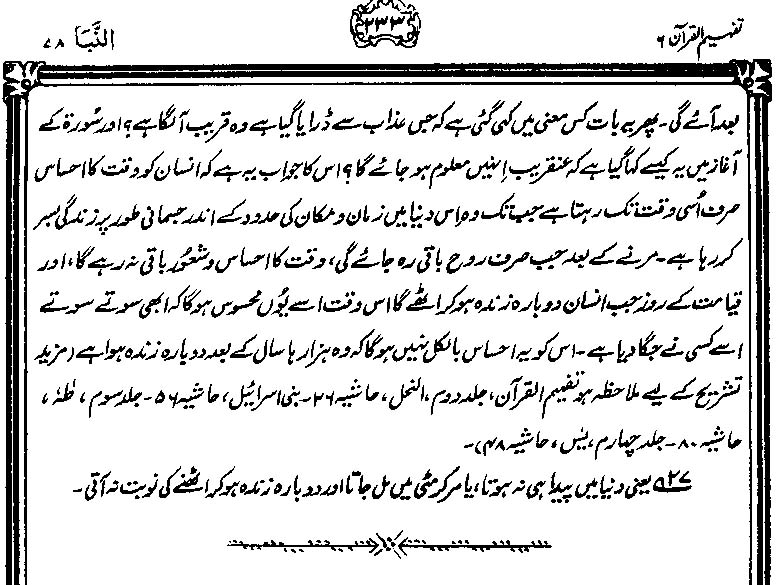 تفہیم القرآن ۶
۲۳۳
النَّبَا ۷۸
بعد آئے گی۔ پھر یہ بات کس معنی میں کہی گئی ہے کہ جس عذاب سے ڈرایا گیا ہے وہ قریب آ لگا ہے؟ اور سُورۃ کے
آغاز میں یہ کیسے کہا گیا ہے کہ عنقریب اِنہیں معلوم ہو جائے گا؟ اس کا جواب یہ ہے کہ انسان کو وقت کا احساس
صرف اُسی وقت تک رہتا ہے جب تک وہ اِس دنیا میں زمان و مکان کی حدود کے اندر جسمانی طور پر زندگی بسر
کر رہا ہے۔ مرنے کے بعد جب صرف روح باقی رہ جائے گی، وقت کا احساس و شعُور باقی نہ رہے گا، اور
قیامت کے روز جب انسان دوبارہ زندہ ہو کر اٹھے گا اس وقت اسے یُوں محسوس ہوگا کہ ابھی سوتے سوتے
اسے کسی نے جگا دیا ہے۔ اس کو یہ احساس بالکل نہیں ہوگا کہ وہ ہزارہا سال کے بعد دوبارہ زندہ ہوا ہے (مزید
تشریح کے لیے ملاحظہ ہو تفہیم القرآن، جلد دوم، النحل، حاشیہ ۲۶۔ بنی اسرائیل، حاشیہ ۵۶۔ جلد سوم، طٰہٰ،
حاشیہ ۸۰۔ جلد چہارم، یٰس، حاشیہ ۴۸)۔
۲۷ یعنی دنیا میں پیدا ہی نہ ہوتا، یا مر کر مٹی میں مل جاتا اور دوبارہ زندہ ہو کر اٹھنے کی نوبت نہ آتی۔